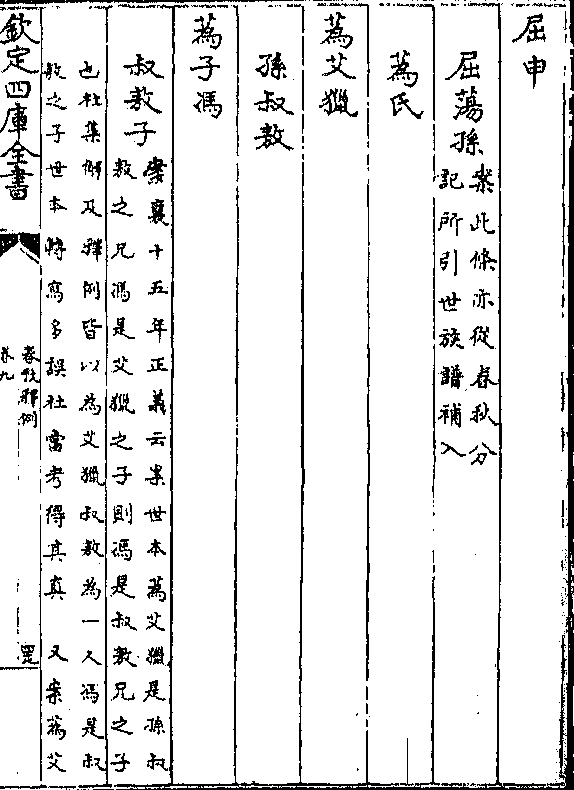 屈申
屈蕩孫
案此條亦從春秋分
記所引世族譜補入
蒍氏
蒍艾獵
孫叔敖
蒍子馮
叔敖子
案襄十五年正義云案世本蒍艾獵是孫叔
敖之兄馮是艾獵之子則馮是叔敖兄之子
也杜集解及釋例皆以為艾獵叔敖為一人馮是叔
敖之子世本轉寫多誤杜當考得其真 又案蒍艾
欽定四庫全書
春秋釋例
卷九